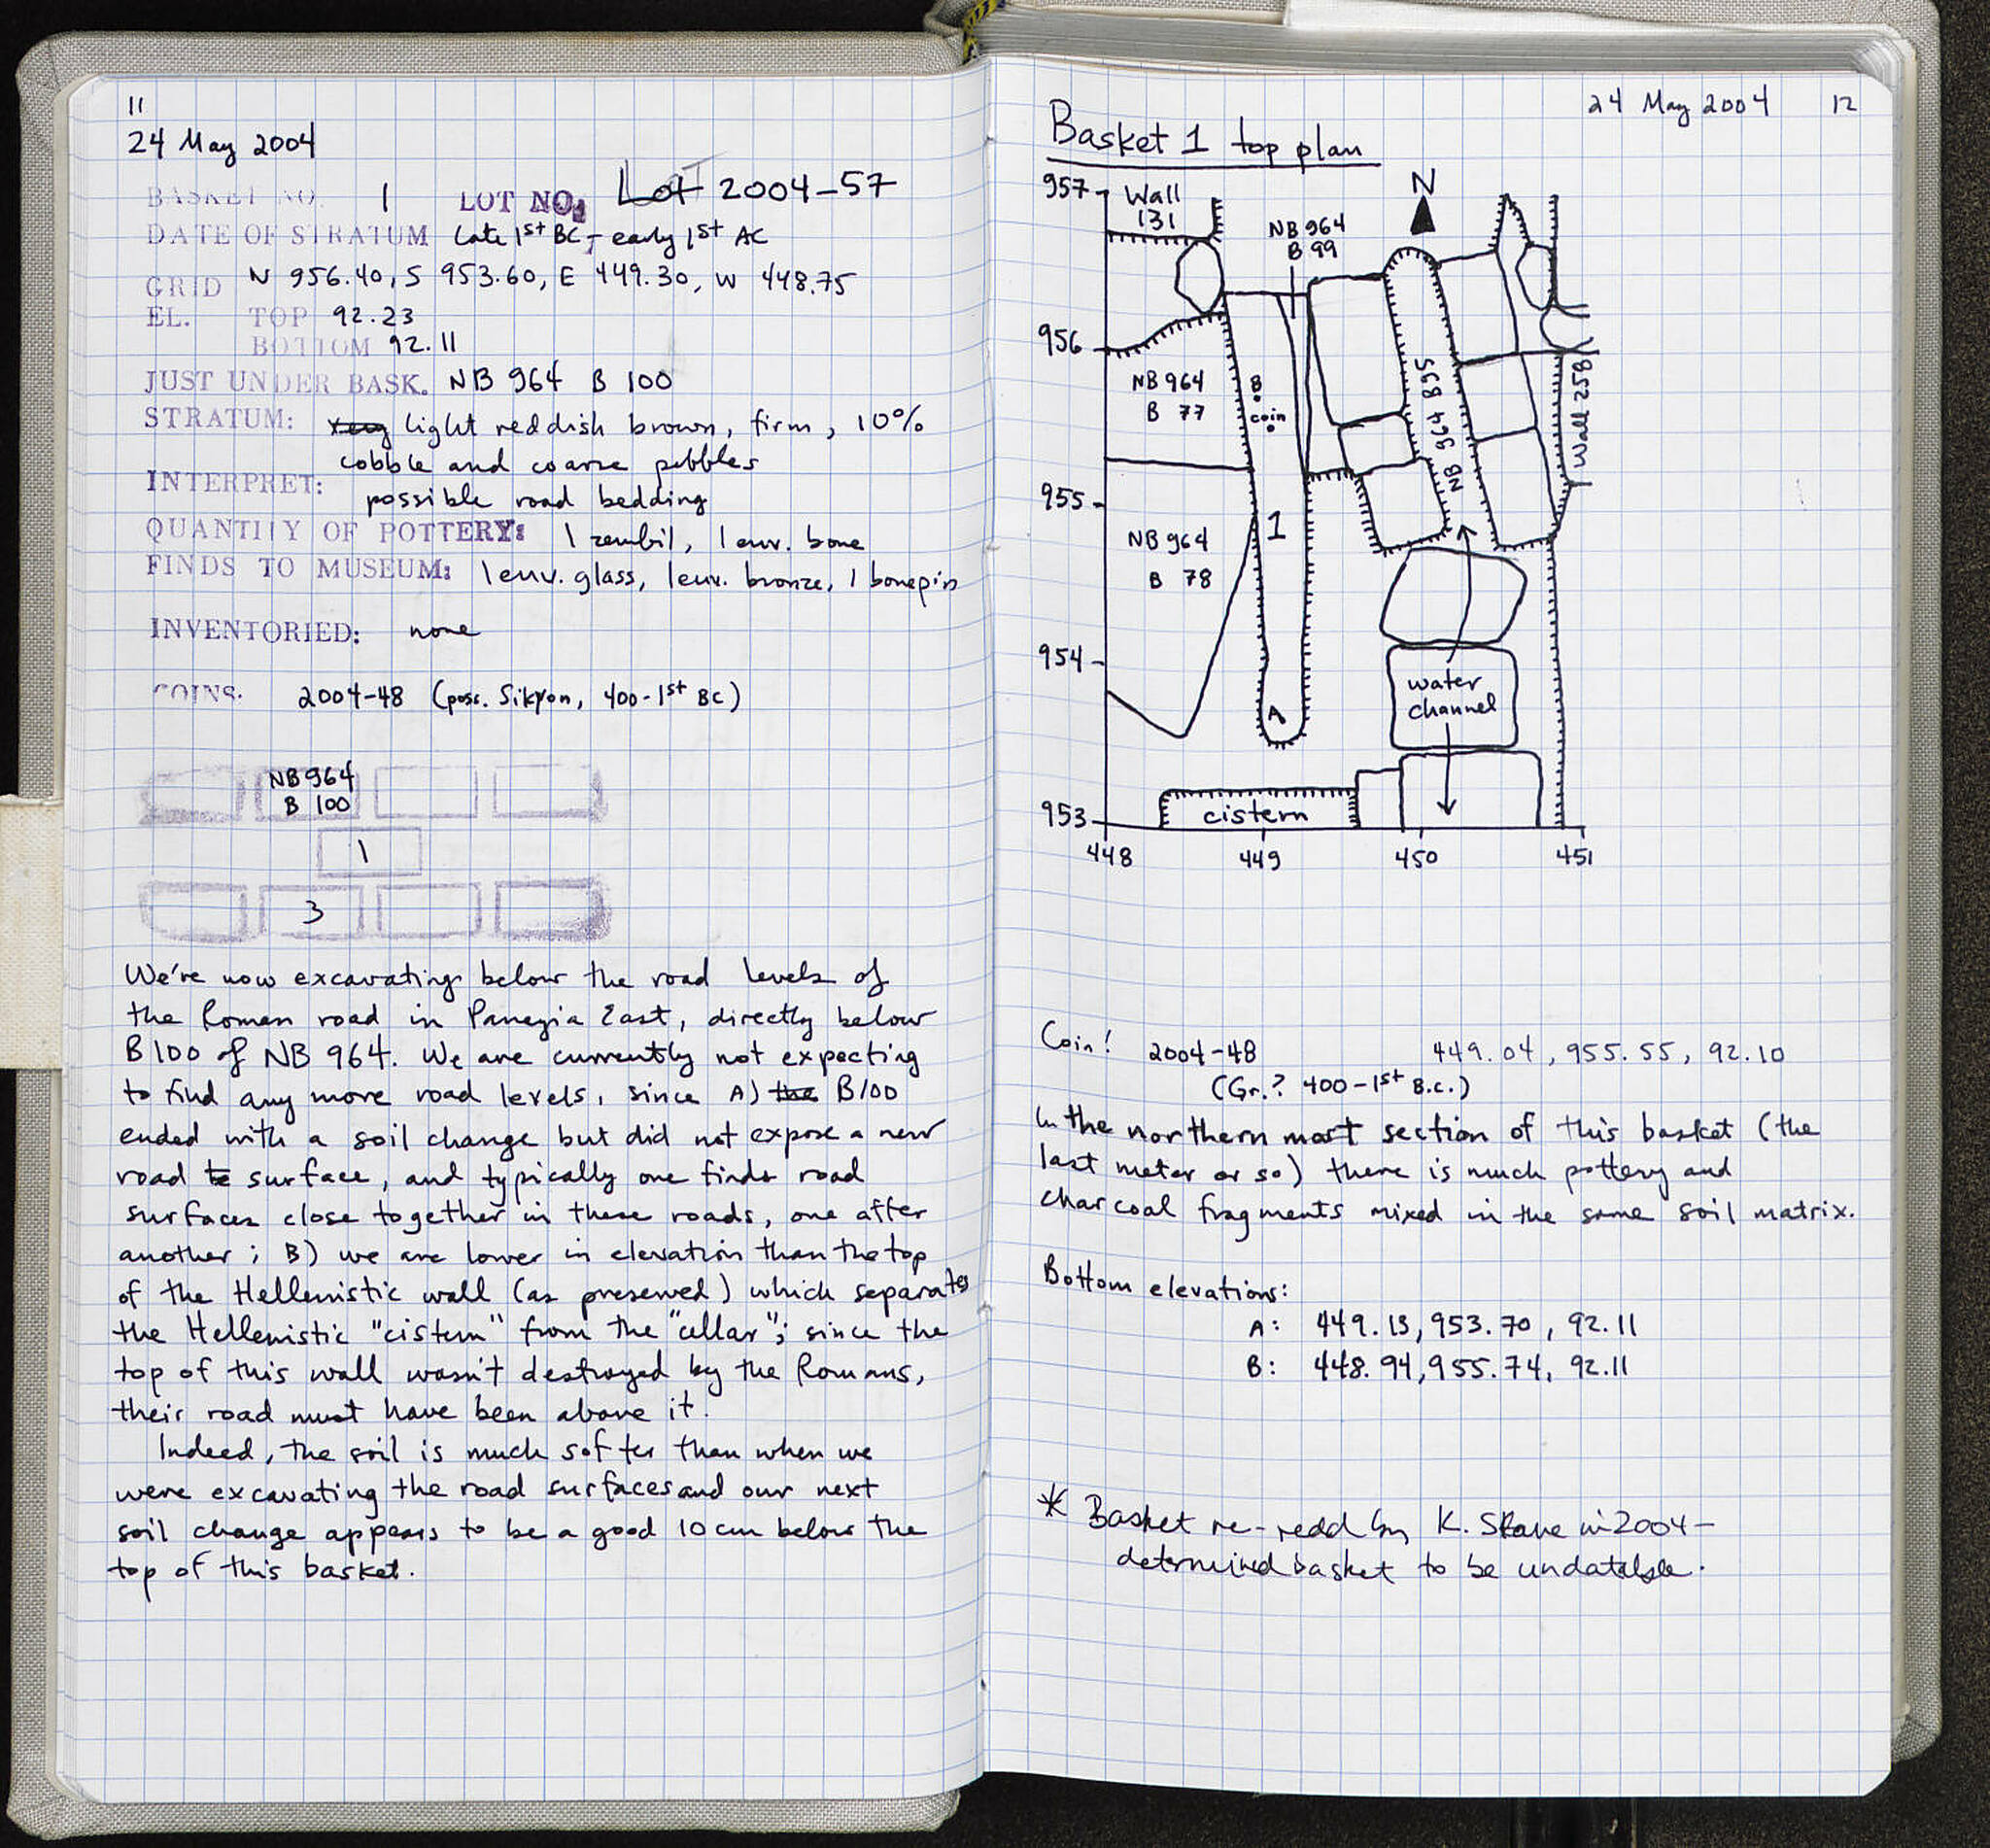 11
24 May 2004
BASKET NO. 1 LOT NO. Lot 2004-57
DATE OF STRATUM Late 1st BC - early 1st AC
GRID N 956.40, S 953.60, E 449.30, W 448.75
EL. TOP 92.23
BOTTOM 92.11
JUST UNDER BASK. NB 964 B 100
STRATUM: very light reddish brown, firm, 10%
cobble and coarse pebbles
INTERPRET: possible road bedding
QUANTITY OF POTTERY: 1 zembil, 1 env. bone
FINDS TO MUSEUM: 1 env. glass, 1 env. bronze, 1 bonepin
INVENTORIED: none
COINS. 2004-48 (poss. Sikyon, 400-1st BC)
NB 964
B 100
1
3
We're now excavating below the road levels of
the Roman road in Panayia East, directly below
B100 of NB 964. We are currently not expecting
to find any more road levels, since A) the B100
ended with a soil change but did not expose a new
road surface, and typically one finds road
surfaces close together in these roads, one after
another; B) we are lower in elevation than the top
of the Hellenistic wall (as preserved) which separates
the Hellenistic "cistern" from the "cellar"; since the
top of this wall wasn't destroyed by the Romans,
their road must have been above it.
Indeed, the soil is much softer than when we
were excavating the road surfaces and our next
soil change appears to be a good 10 cm below the
top of this basket.
24 May 2004 12
Basket 1 top plan
957
Wall
131
NB 964
B 99
N
956
NB 964
B 77
B
coin
NB 964 B35
Wall 258
955
NB 964
B 78
1
954
water
channel
A
953
cistern
448 449 450 451
Coin! 2004-48 449.04, 955.55, 92.10
(Gr.? 400-1st B.C.)
In the northern most section of this basket (the
last meter or so) there is much pottery and
charcoal fragments mixed in the same soil matrix.
Bottom elevations:
A: 449.13, 953.70, 92.11
B: 448.94, 955.74, 92.11
* Basket re-read by K. Slane in 2004-
determined basket to be undatable.